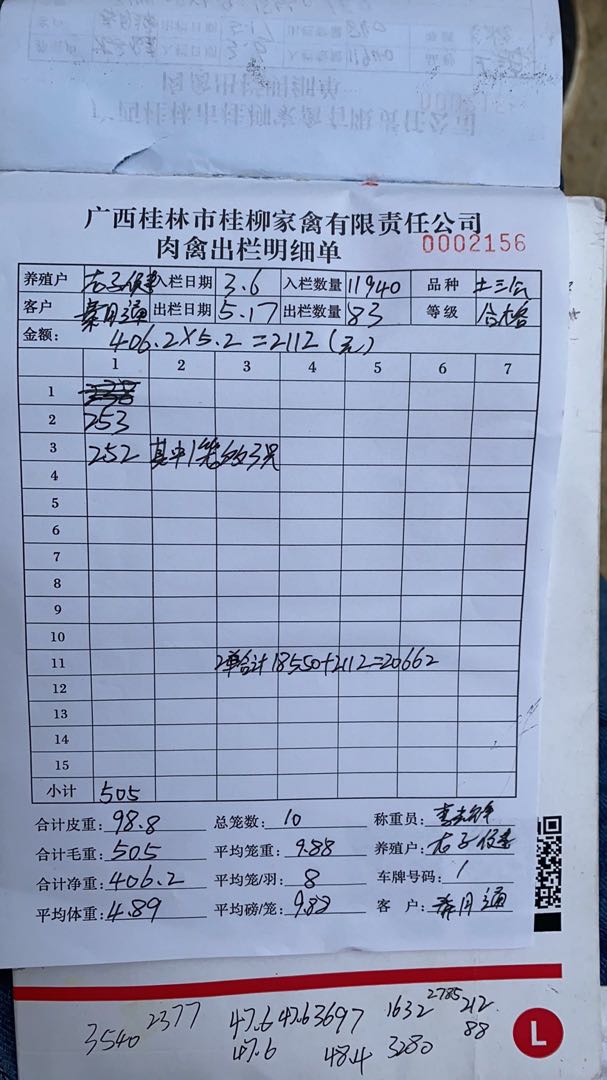 广西桂林市桂柳家禽有限责任公司
肉禽出栏明细单 0002156
养殖户 入栏日期 3.6 入栏数量 11940 品种 土三
客户 秦月通 出栏日期 5.17 出栏数量 83 等级 合格
金额: 406.2×5.2=2112(元)
1 2 3 4 5 6 7
1
2 253
3 252 其中1笼3只
4
5
6
7
8
9
10
11 2单合计18550+2112=20662
12
13
14
15
小计 505
合计皮重: 98.8 总笼数: 10 称重员:
合计毛重: 505 平均笼重: 9.88 养殖户:
合计净重: 406.2 平均笼/羽: 8 车牌号码: 1
平均体重: 4.89 平均磅/笼: 9.88 客户: 秦月通
3540 2377 47.6 47.6 3697 1632 2785 212
47.6 48.4 3280 88
L